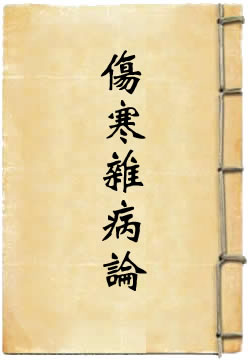 傷寒雜病論